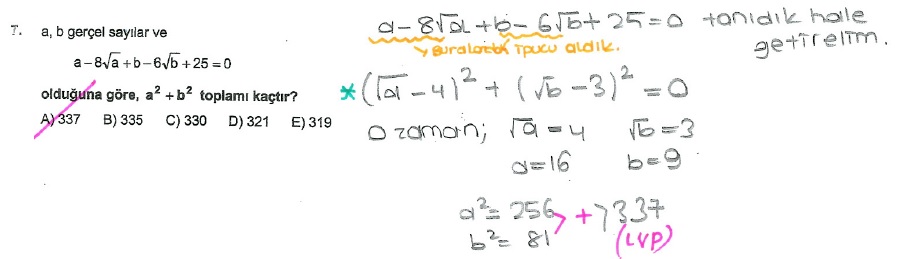 7. a, b gerçel sayılar ve
a−8√a+b−6√b+25=0
olduğuna göre, a²+b² toplamı kaçtır?
A) 337 B) 335 C) 330 D) 321 E) 319
a−8√a+b−6√b+25=0 tanıdık hale
getirelim.
Buralardan ipucu aldık.
*(√a−4)²+(√b−3)²=0
O zaman; √a=4 √b=3
a=16 b=9
a²=256
+ 337
b²=81
(LVP)